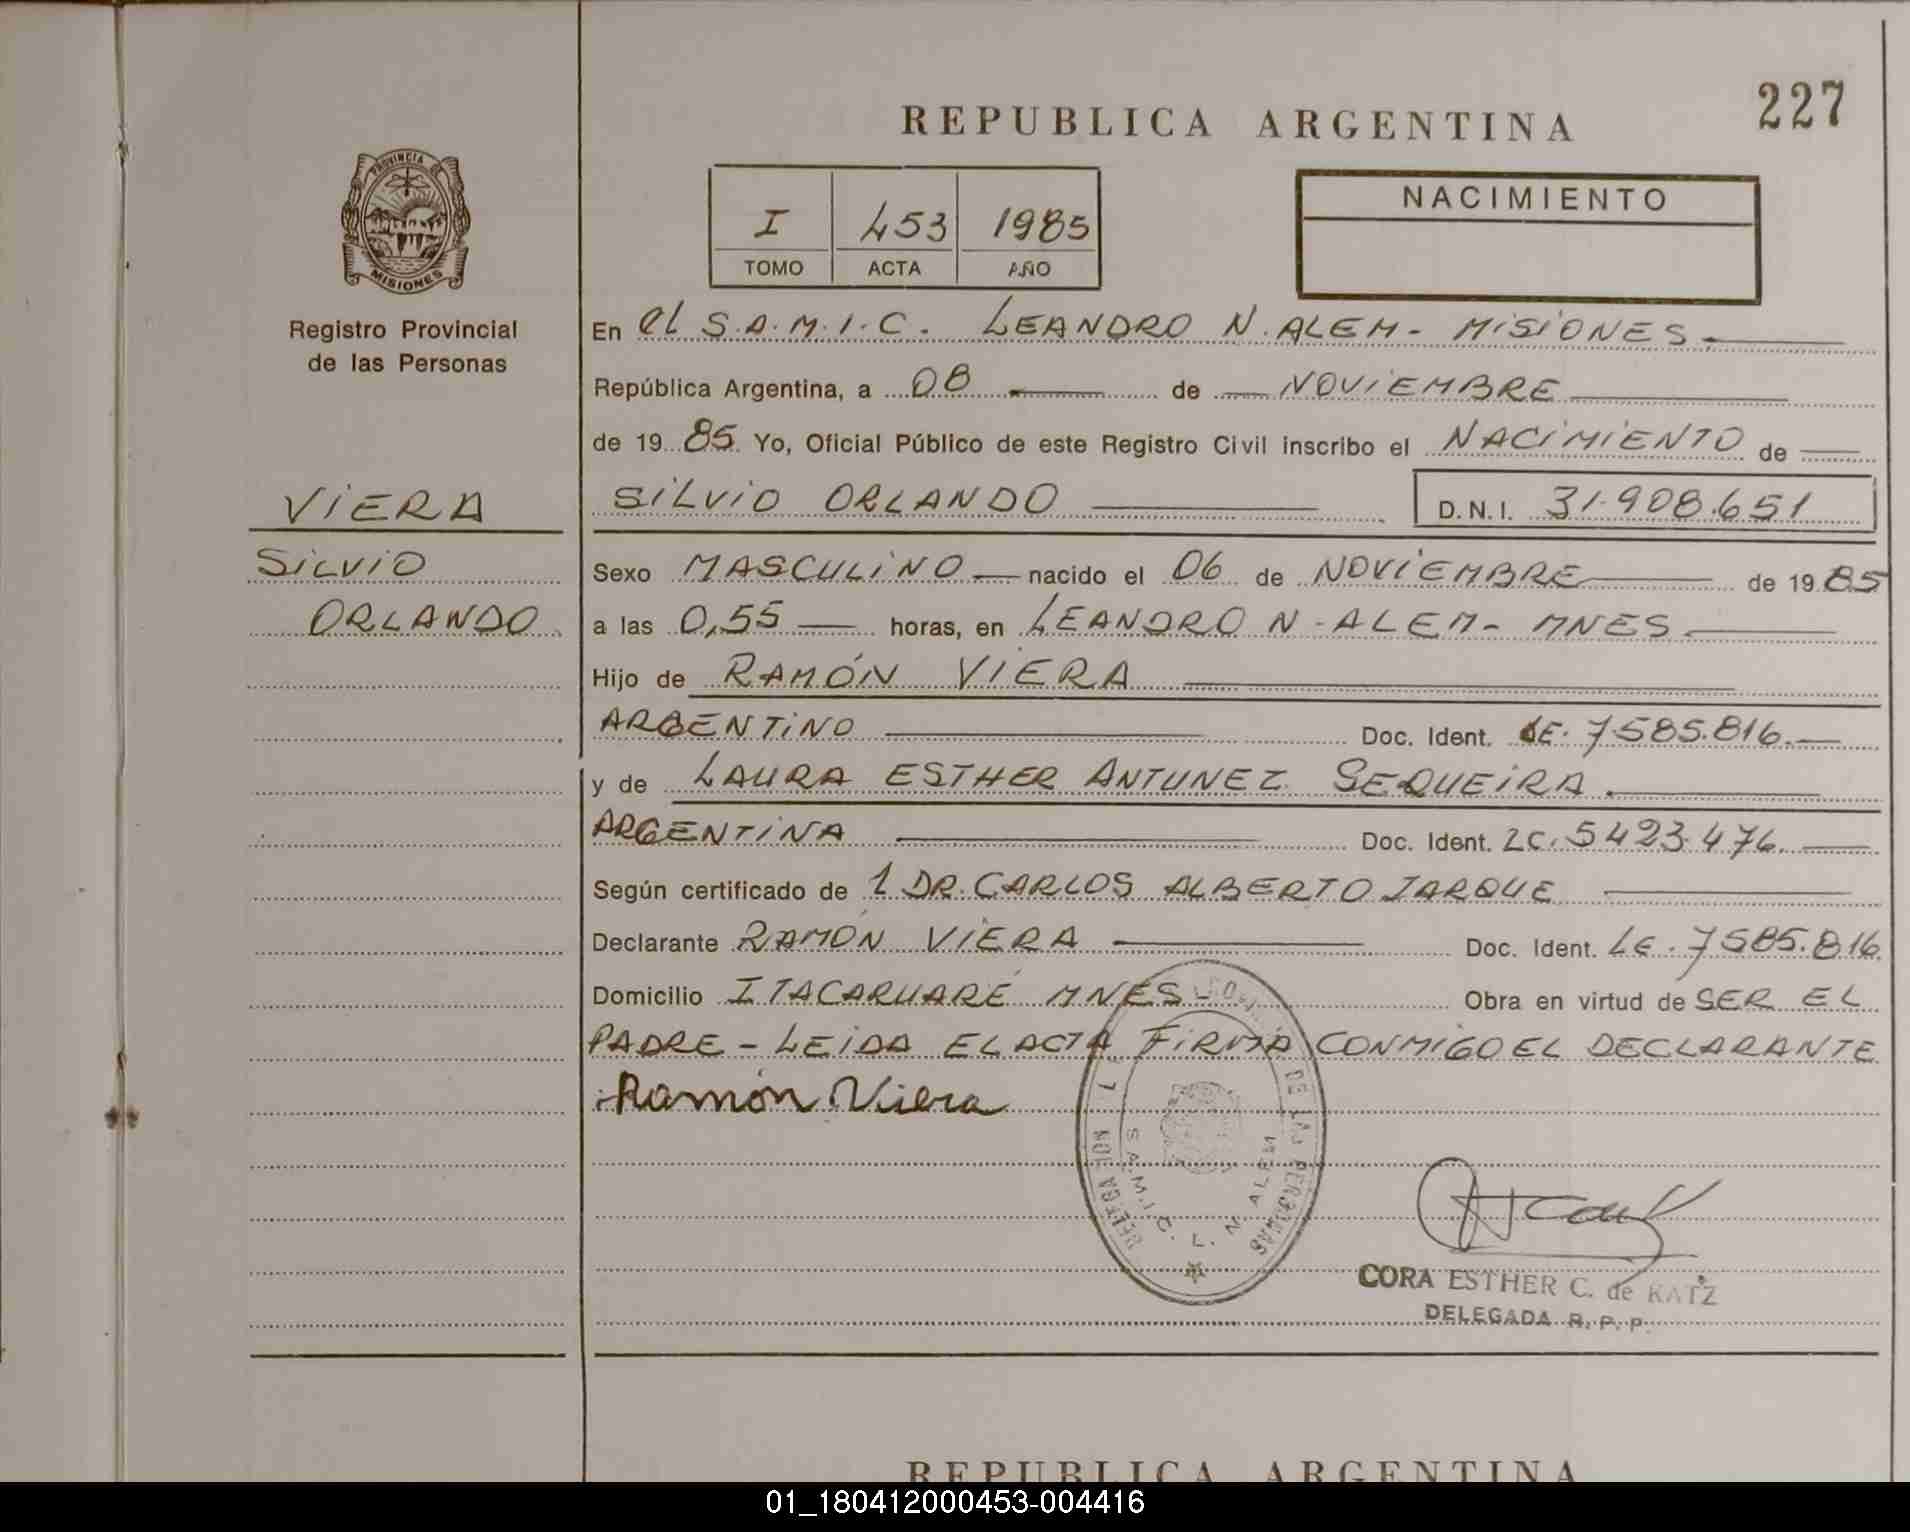 227
REPUBLICA ARGENTINA
PROVINCIA
MISIONES
Registro Provincial
de las Personas
I 453 1985
TOMO ACTA AÑO
NACIMIENTO
En el S.A.M.I.C. LEANDRO N. ALEM - MISIONES.
República Argentina, a 08 de NOVIEMBRE
de 19 85 Yo, Oficial Público de este Registro Civil inscribo el NACIMIENTO de
VIERA
SILVIO ORLANDO D.N.I. 31.908.651
SILVIO
ORLANDO
Sexo MASCULINO nacido el 06 de NOVIEMBRE de 19 85
a las 0,55 horas, en LEANDRO N. ALEM - MNES
Hijo de RAMÓN VIERA
ARGENTINO Doc. Ident. LE. 7.585.816.
y de LAURA ESTHER ANTUNEZ SEQUEIRA.
ARGENTINA Doc. Ident. LC. 5423.476.
Según certificado de 1 DR. CARLOS ALBERTO JARQUE
Declarante RAMÓN VIERA Doc. Ident. LE. 7585.816
Domicilio ITACARUARÉ MNES - Obra en virtud de SER EL
PADRE - LEIDA EL ACTA FIRMA CONMIGO EL DECLARANTE
Ramón Viera
DE LAS PERSONAS
S.A.M.I.C. L. N. ALEM
CORA ESTHER C. de KATZ
DELEGADA R.P.P.
REPUBLICA ARGENTINA
01_180412000453-004416